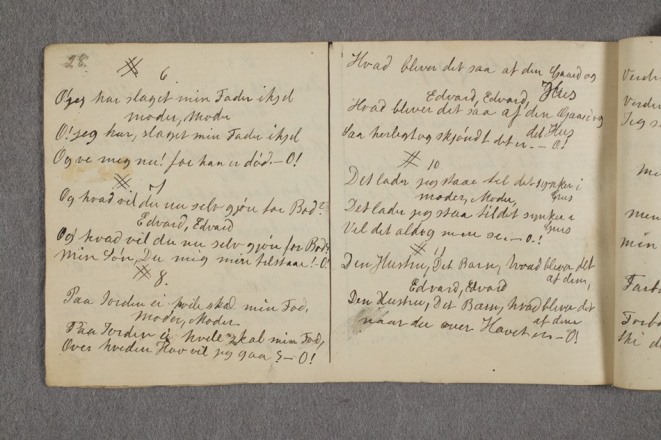 28.
6.
O! jeg har slaget min Fader ihjel
Moder, Moder
O! jeg har, slaget min Fader ihjel
Og ve meg nu! for han er død. – O!
7
Og hvad vil du nu selv gjøre for Bod?
Edvard, Edvard
Og hvad vil du nu selv gjøre for Bod
Min Søn, Du mig min tilstaae! – O!
8.
Paa Jorden ei hvile skal min Fod,
Moder, Moder
Paa Jorden ei hvile skal min Fod,
Over hveden Hav vil jeg gaa! – O!
Hvad bliver det saa af den Gaard og
Hus
Edvard, Edvard,
Hvad bliver det saa af den Gaard og
det Hus
Saa herligt og skjøndt det er. – O!
10
Det lader jeg staae til det synker i
Grus
Moder, Moder,
Det lader jeg staa til det synker i
Grus
Vel det aldrig mere se. – O!
11
Den Hustru, Det Barn, hvad bliver det
af dem,
Edvard, Edvard
Den Hustru, Det Barn, hvad bliver det
af dem
naar du over Havet er – O!
Verde
Verde
Jeg s
me
men
min
Forba
Forba
Thi d